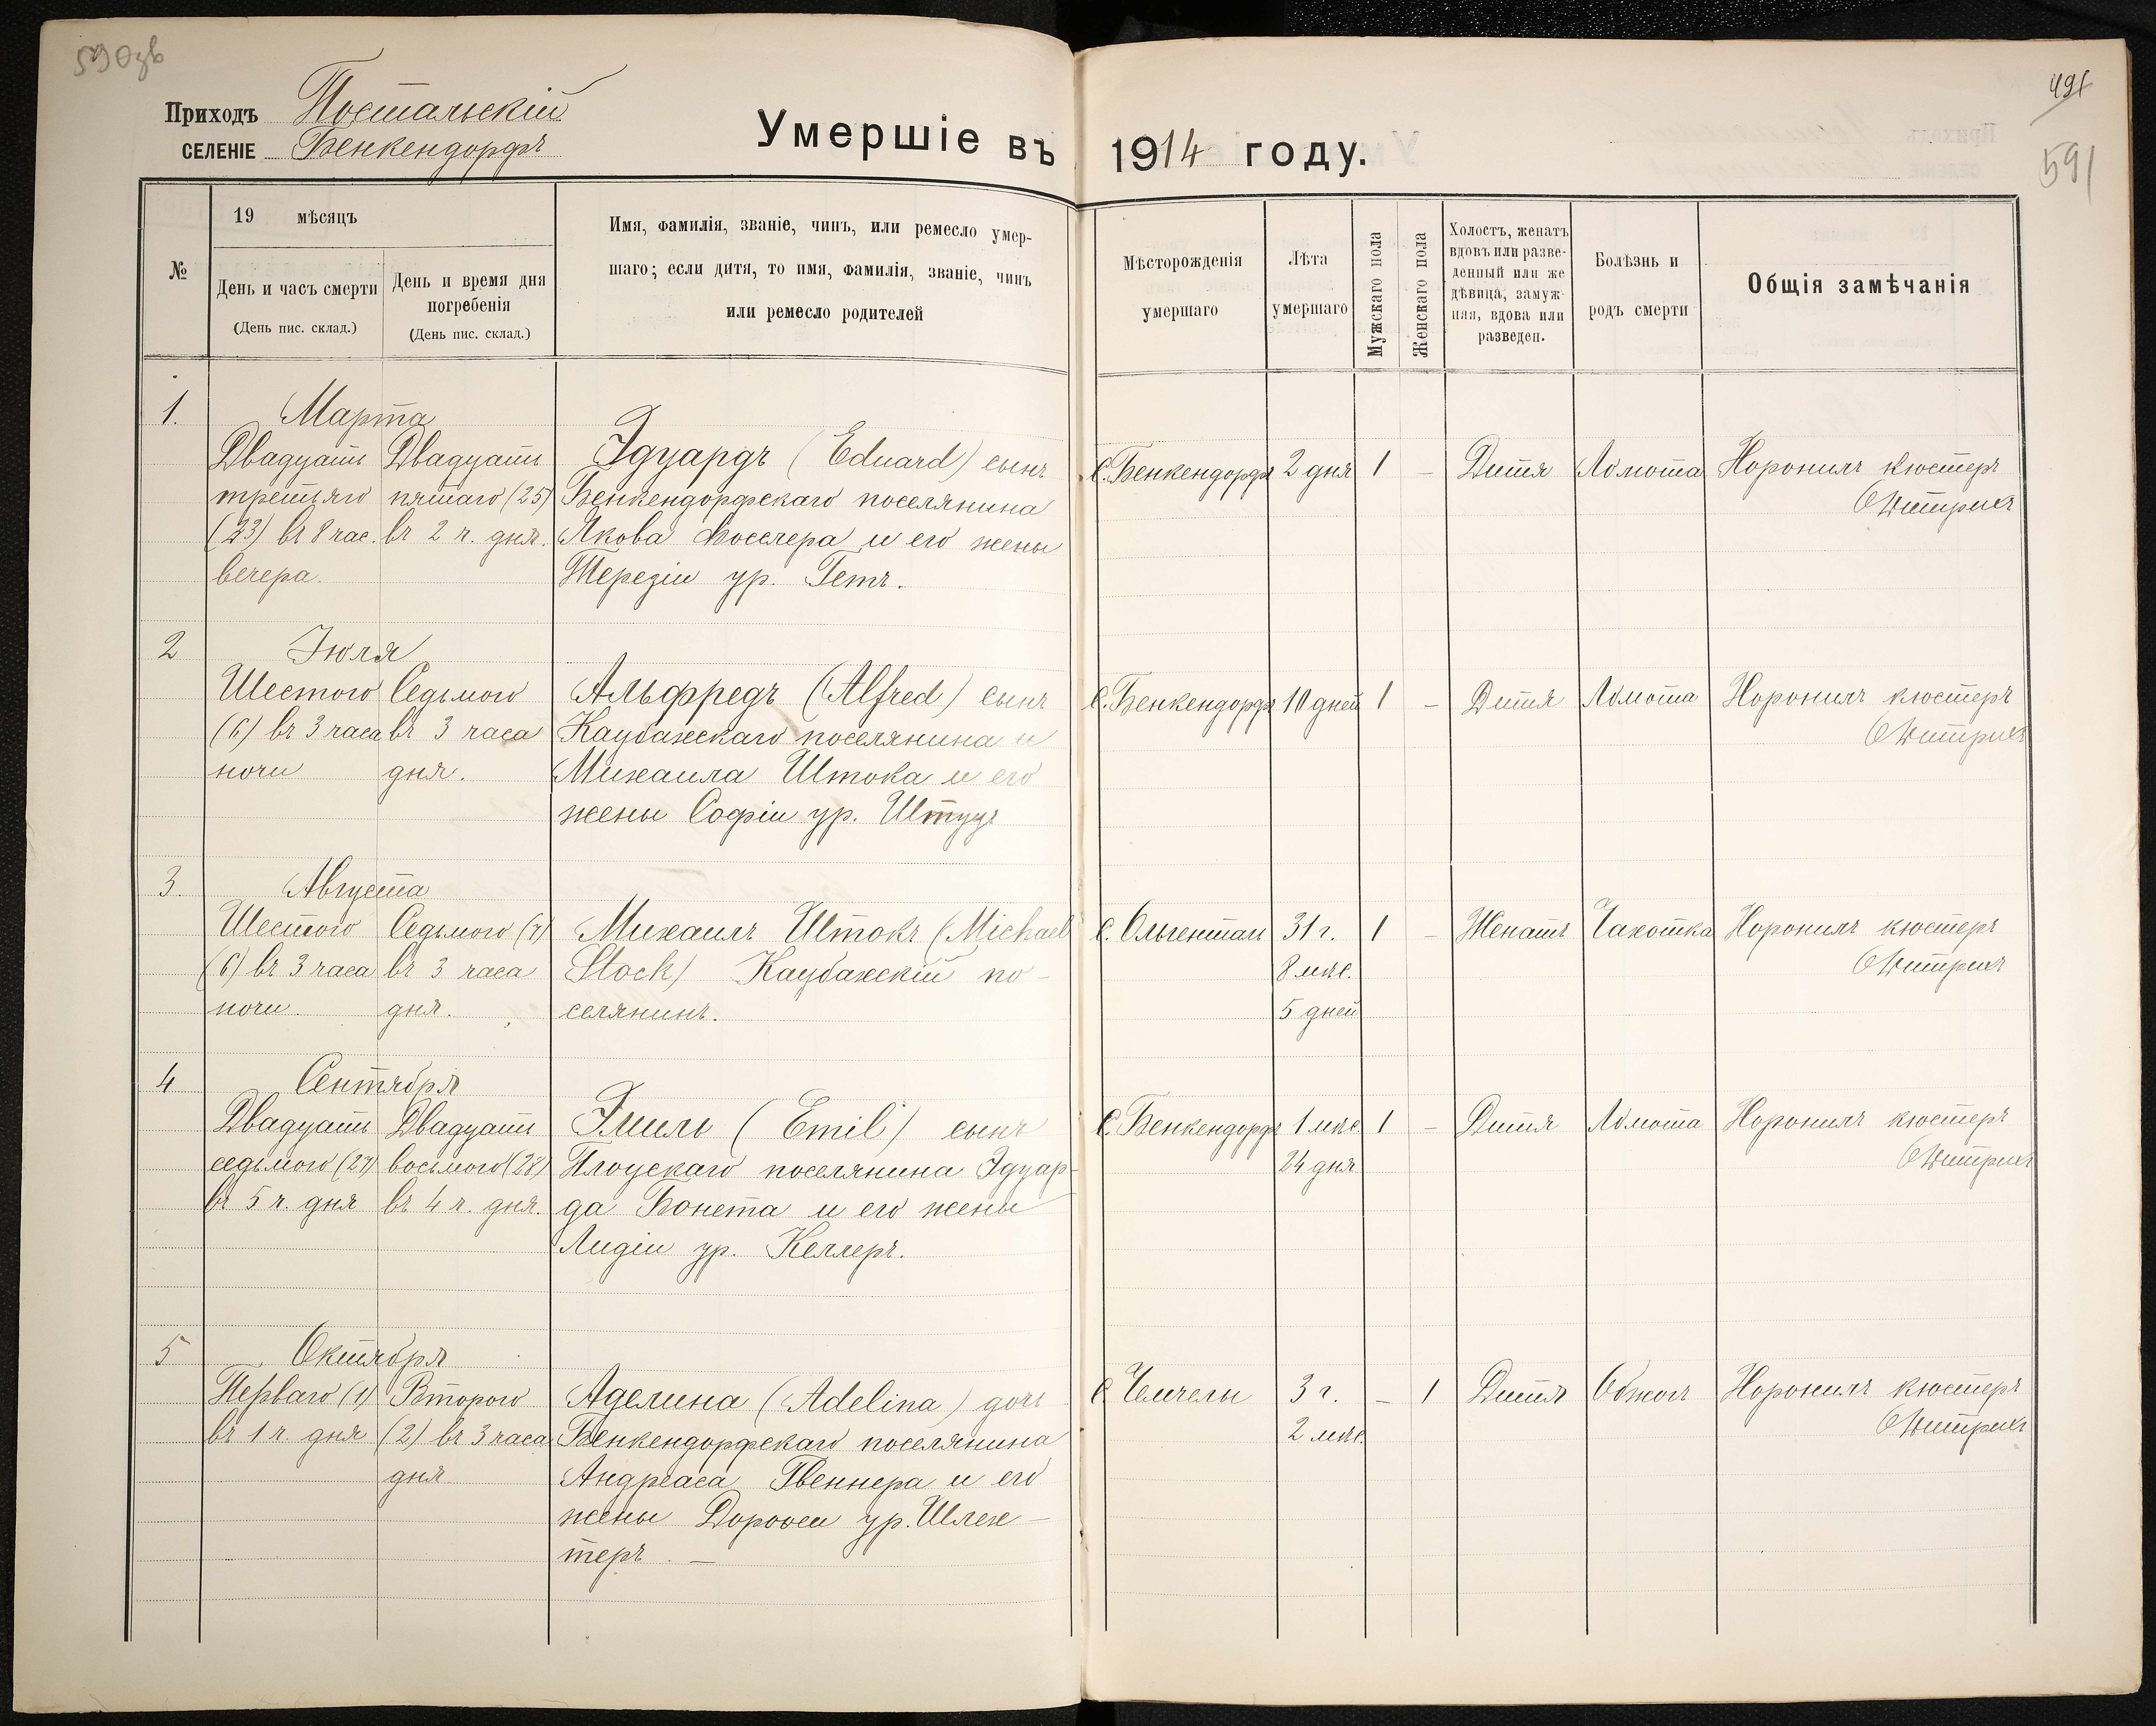 590зв
Приходъ Постальскій
СЕЛЕНІЕ Бенкендорфъ
Умершіе въ 1914 году.
491
591
№
19 мѣсяцъ
День и часъ смерти
(День пис. склад.)
День и время дня
погребенія
(День пис. склад.)
Имя, фамилія, званіе, чинъ, или ремесло умер-
шаго; если дитя, то имя, фамилія, званіе, чинъ
или ремесло родителей
Мѣсторожденія
умершаго
Лѣта
умершаго
Мужскаго пола
Женскаго пола
Холостъ, женатъ
вдовъ или разве-
денный или же
дѣвица, замуж-
няя, вдова или
разведен.
Болѣзнь и
родъ смерти
Общія замѣчанія
1.
Марта
Двадцать
третьяго
(23) въ 8 час.
вечера.
Двадцать
пятаго (25)
въ 2 ч. дня.
Эдуардъ (Eduard) сынъ
Бенкендорфскаго поселянина
Якова Фосслера и его жены
Терезіи ур. Гетъ.
с. Бенкендорфъ
2 дня
1
–
Дитя
Ломота
Хоронилъ кюстеръ
О Витрихъ
2
Іюля
Шестого
(6) въ 3 часа
ночи
Седьмого
въ 3 часа
дня.
Альфредъ (Alfred) сынъ
Каубахскаго поселянина и
Михаила Штока и его
жены Софіи ур. Штуцъ
с. Бенкендорфъ
10 дней
1
–
Дитя
Ломота
Хоронилъ кюстеръ
О Витрихъ
3.
Августа
Шестого
(6) въ 3 часа
ночи.
Седьмого (7)
въ 3 часа
дня.
Михаилъ Штокъ (Michael
Stock) Каубахскій по-
селянинъ.
с. Ольгенталь
31 г.
8 мѣс.
5 дней
1
–
Женатъ
Чахотка
Хоронилъ кюстеръ
О Витрихъ
4
Сентября
Двадцать
седьмого (27)
въ 5 ч. дня
Двадцать
восьмого (28)
въ 4 ч. дня.
Эмиль (Emil) сынъ
Плоцскаго поселянина Эдуар-
да Бонета и его жены
Лидіи ур. Келлеръ.
с. Бенкендорфъ
1 мѣс.
24 дня
1
–
Дитя
Ломота
Хоронилъ кюстеръ
О Витрихъ
5
Октября
Перваго (1)
въ 1 ч. дня
Второго
(2) въ 3 часа
дня.
Аделина (Adelina) дочь
Бенкендорфскаго поселянина
Андреаса Гвеннера и его
жены Доротеи ур. Шлех-
теръ. –
с. Чемчелы
3 г.
2 мѣс.
–
1
Дитя
Обжогъ
Хоронилъ кюстеръ
О Витрихъ